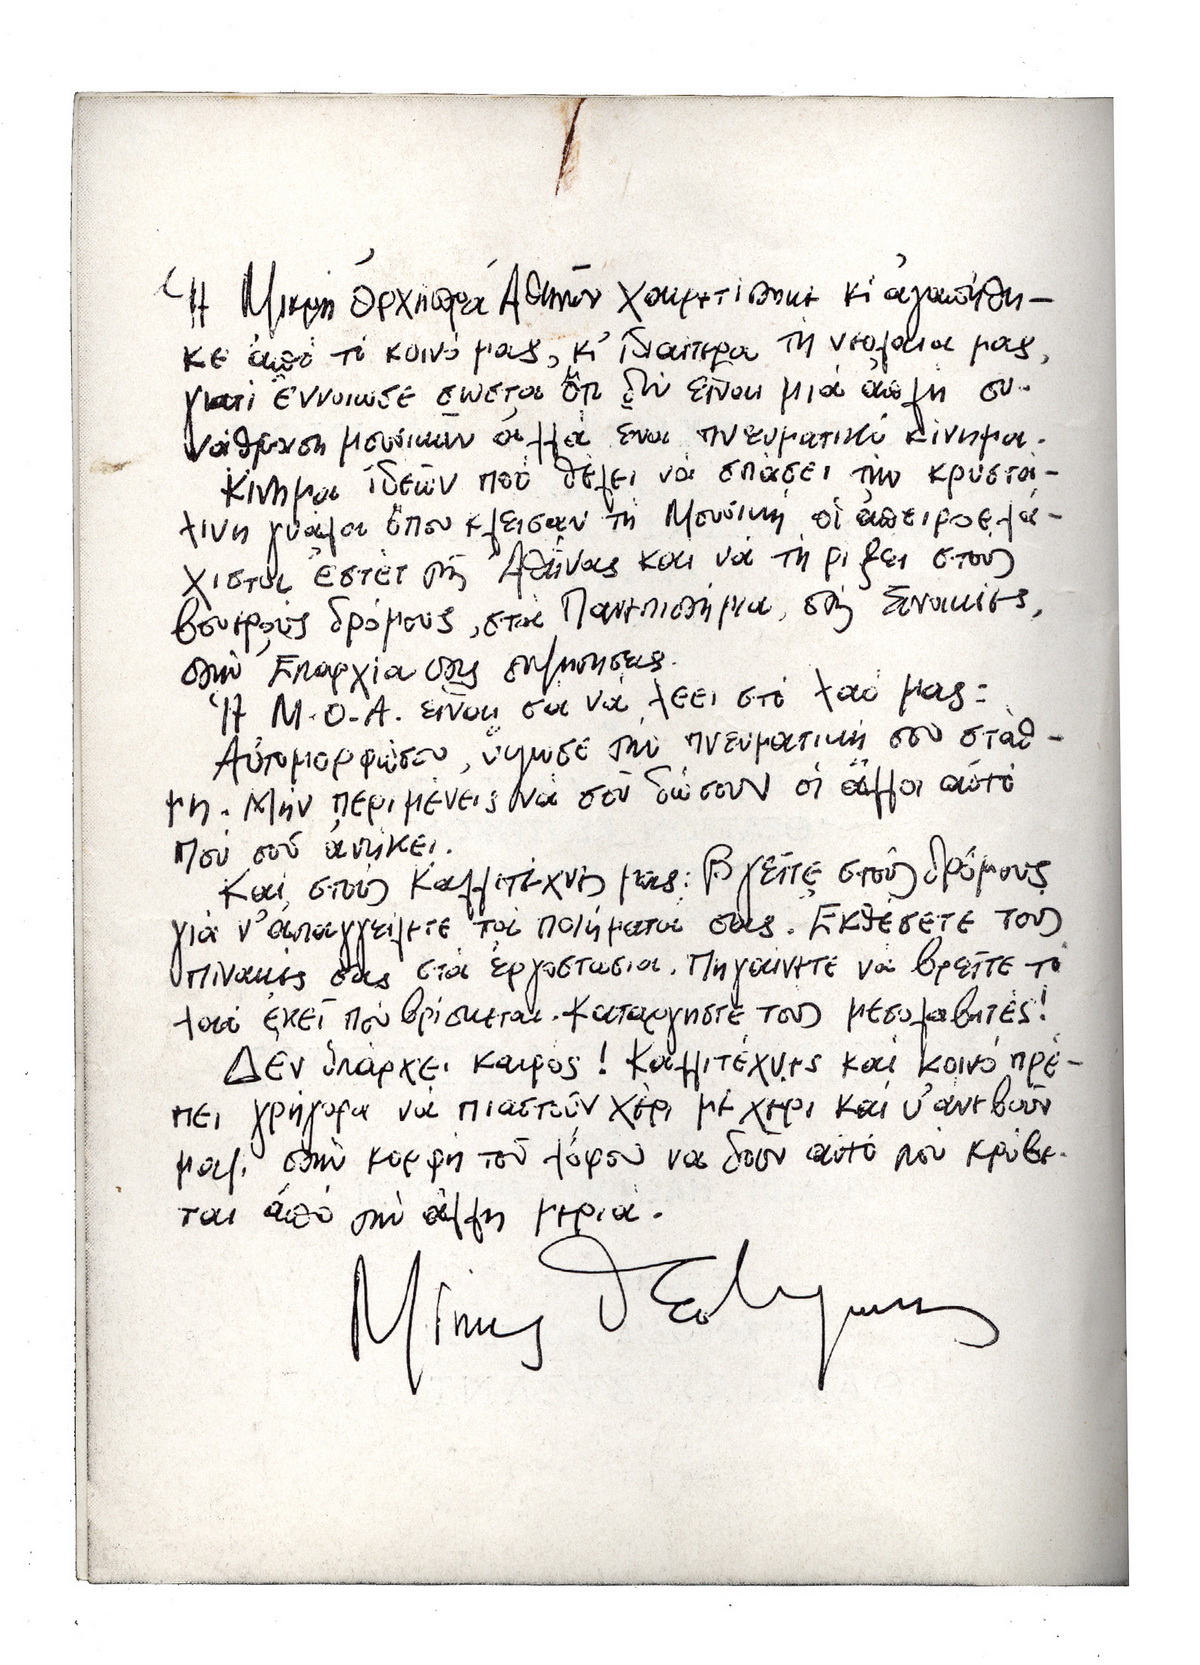 Ἡ Μικρὴ Ὀρχήστρα Ἀθηνῶν χαιρετίστηκε κι ἀγαπήθη-
κε ἀπὸ τὸ κοινό μας, κι ἰδιαίτερα τὴ νεολαία μας,
γιατὶ ἔννοιωσε σωστὰ ὅτι δὲν εἶναι μιὰ ἁπλὴ συ-
νάθροιση μουσικῶν ἀλλὰ ἕνα πνευματικὸ κίνημα.
Κίνημα ἰδεῶν ποὺ θέλει νὰ σπάσει τὴν κρυστά-
λινη γυάλα ὅπου κλείσαν τὴ Μουσικὴ οἱ ἀπειροελά-
χιστοι ἐστὲτ τῆς Ἀθήνας καὶ νὰ τὴ ρίξει στοὺς
βουερούς δρόμους, στὰ Πανεπιστήμια, στὶς Συνοικίες,
στὴν Ἐπαρχία στὶς συζητήσεις.
Ἡ Μ.Ο.Α. εἶναι σὰ νὰ λέει στὸ λαό μας:
Αὐτομορφώσου, ὕψωσε τὴν πνευματική σου στάθ-
μη. Μὴν περιμένεις νὰ σοῦ δώσουν οἱ ἄλλοι αὐτὸ
ποὺ σοῦ ἀνήκει.
Καὶ στοὺς Καλλιτέχνες μας: Βγεῖτε στοὺς δρόμους
γιὰ ν' ἀπαγγείλετε τὰ ποιήματά σας. Ἐκθέσετε τοὺς
πίνακές σας στὰ ἐργοστάσια. Πηγαίνετε νὰ βρεῖτε τὸ
λαὸ ἐκεῖ ποὺ βρίσκεται. Καταργῆστε τοὺς μεσολαβητές!
Δὲν ὑπάρχει καιρός! Καλλιτέχνες καὶ κοινὸ πρέ-
πει γρήγορα νὰ πιαστοῦν χέρι μὲ χέρι καὶ ν' ἀνεβοῦν
μαζὶ στὴν κορφὴ τοῦ λόφου νὰ δοῦν αὐτὸ ποὺ κρύβε-
ται ἀπὸ τὴν ἄλλη μεριά.
Μίκης Θεοδωράκης